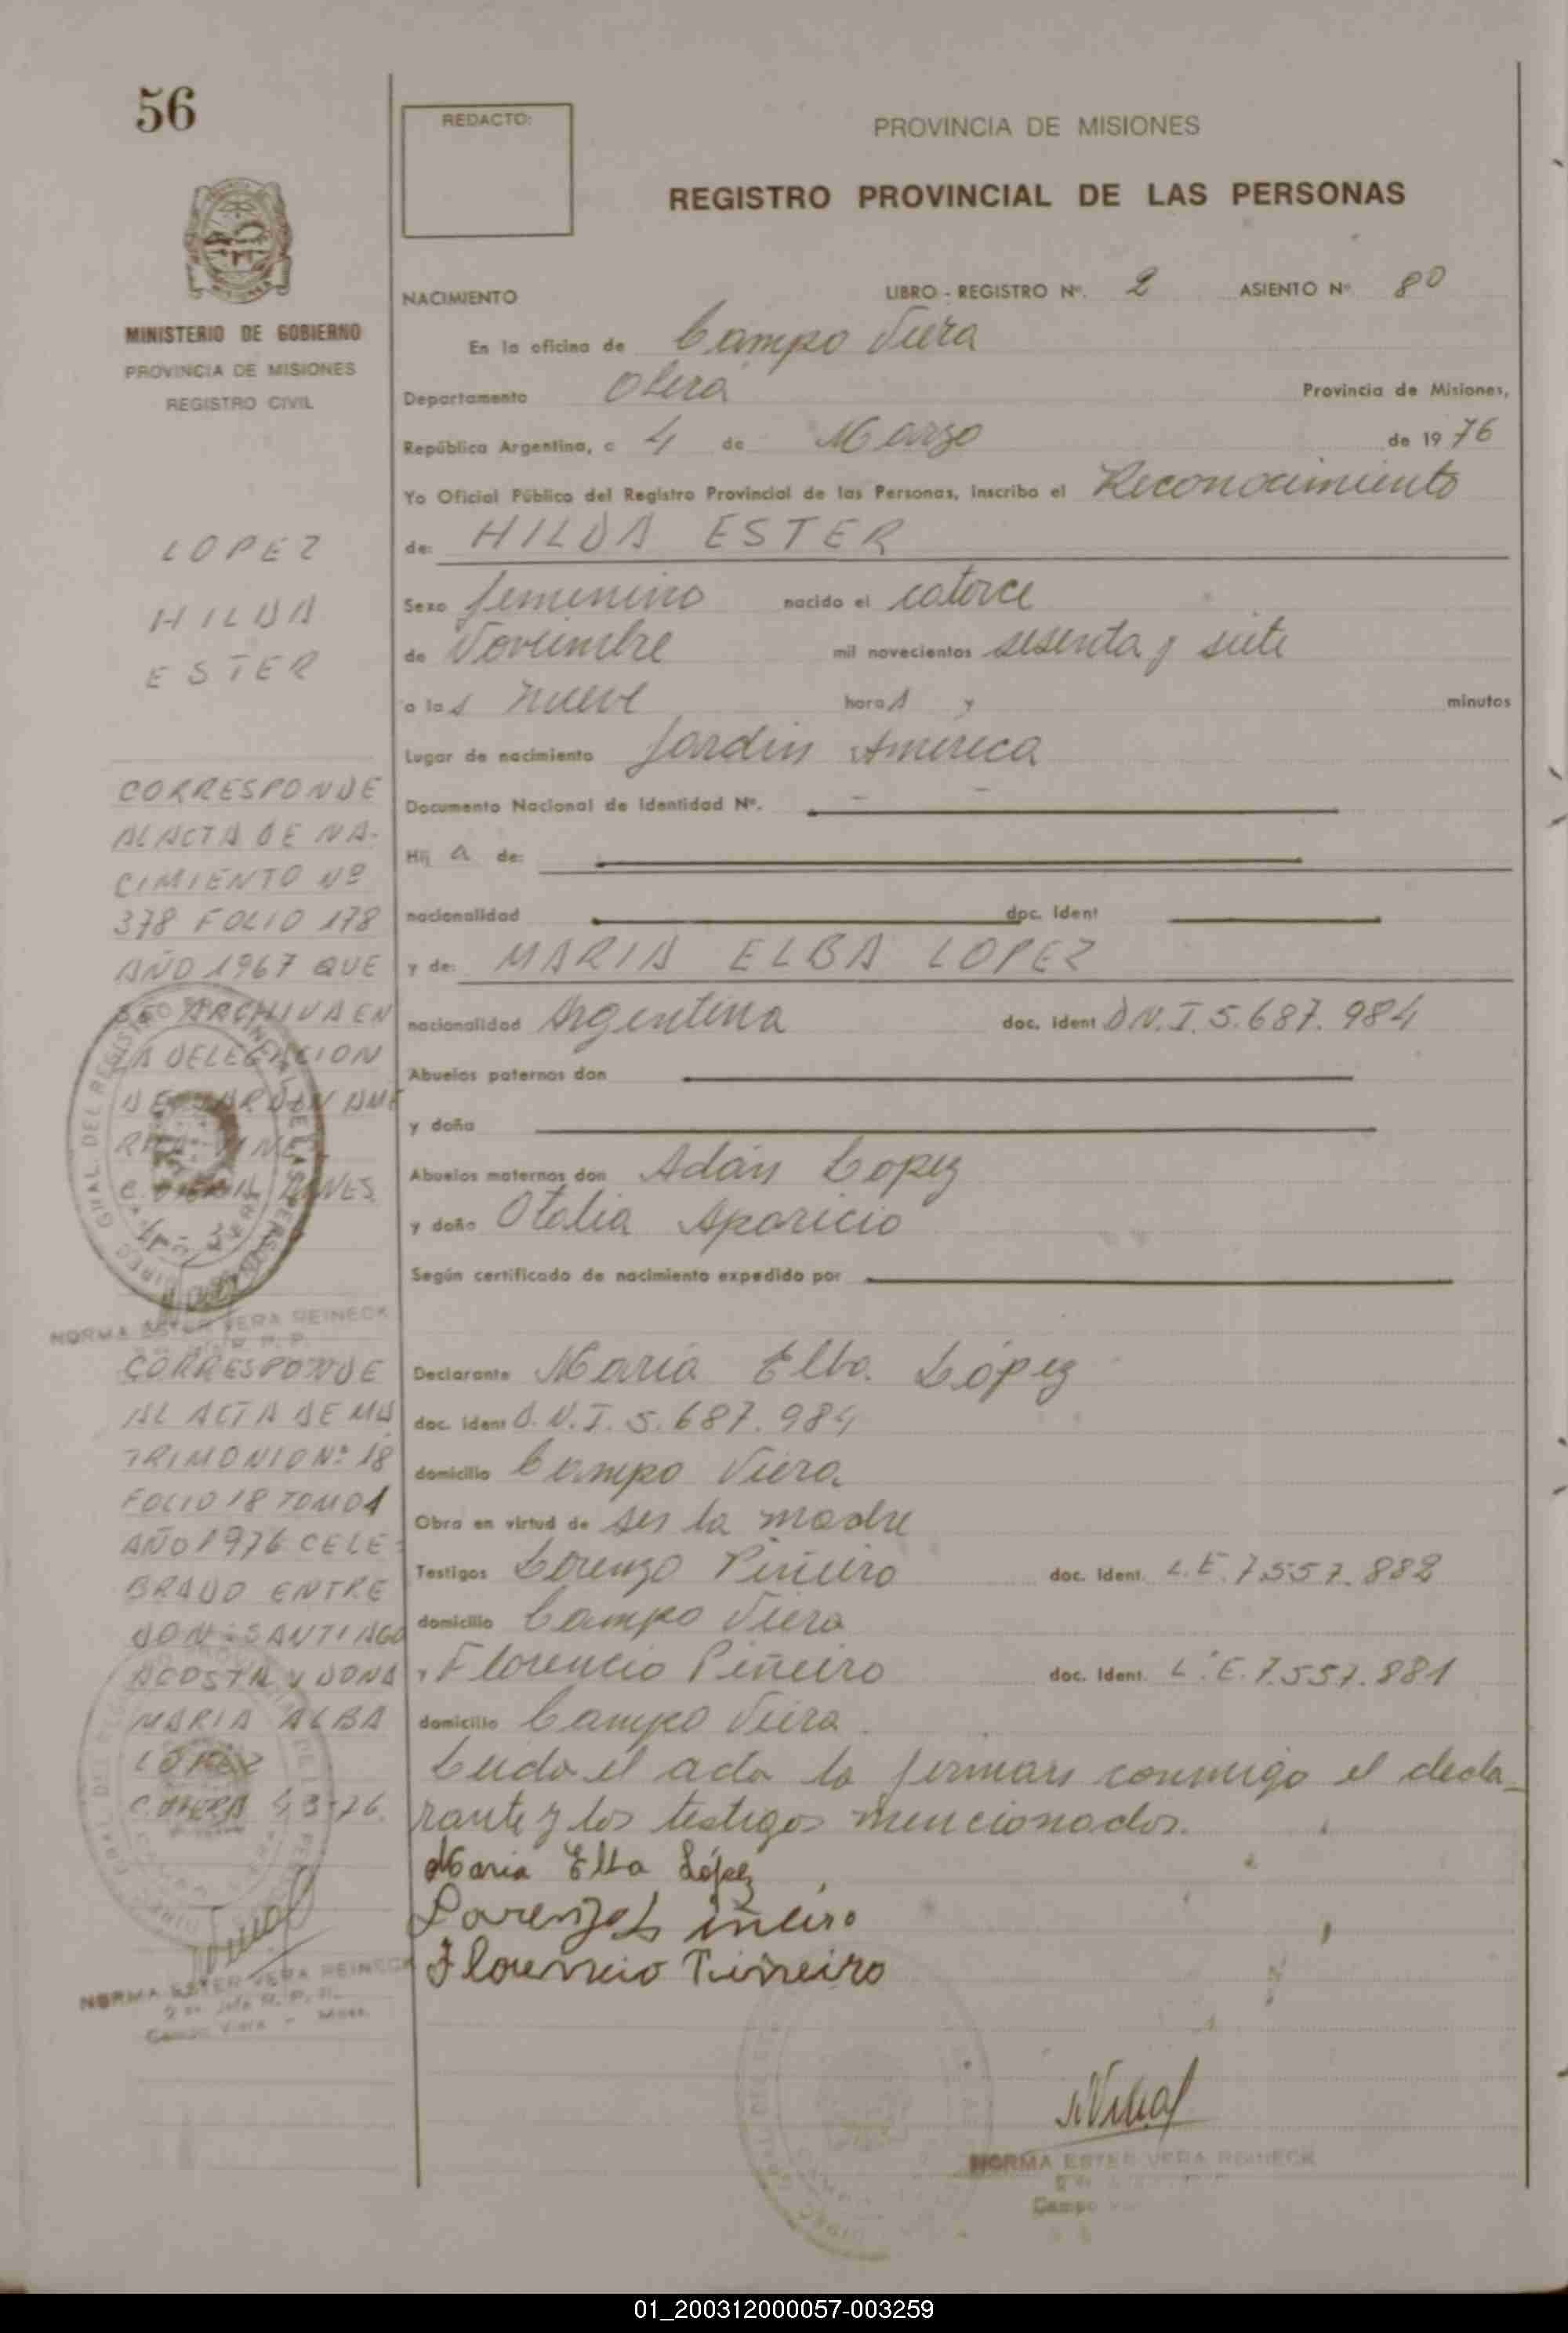 56
MINISTERIO DE GOBIERNO
PROVINCIA DE MISIONES
REGISTRO CIVIL
LOPEZ
HILDA
ESTER
CORRESPONDE
AL ACTA DE NA-
CIMIENTO Nº
378 FOLIO 178
AÑO 1967 QUE
SE ARCHIVA EN
LA DELEGACION
DE JARDIN AME
NORMA ESTER VERA REINECK
CORRESPONDE
AL ACTA DE MA
TRIMONIO Nº 18
FOLIO 18 TOMO 1
AÑO 1976 CELE-
BRADO ENTRE
DON SANTIAGO
ACOSTA Y DOÑA
MARIA ALBA
LOPEZ
C. VIERA 4-3-76
NORMA ESTER VERA REINECK
Campo Viera - Mnes.
REDACTO:
PROVINCIA DE MISIONES
REGISTRO PROVINCIAL DE LAS PERSONAS
NACIMIENTO LIBRO - REGISTRO Nº. 2 ASIENTO Nº 80
En la oficina de Campo Viera
Departamento Oberá Provincia de Misiones,
República Argentina, a 4 de Marzo de 1976
Yo Oficial Público del Registro Provincial de las Personas, inscribo el Reconocimiento
de: HILDA ESTER
Sexo femenino nacido el catorce
de Noviembre mil novecientos sesenta y siete
a las nueve horas y minutos
Lugar de nacimiento Jardin America
Documento Nacional de Identidad Nº.
Hij a de:
nacionalidad doc. Ident
y de: MARIA ELBA LOPEZ
nacionalidad Argentina doc. ident D.N.I. 5.687.984
Abuelos paternos don
y doña
Abuelos maternos don Adán Lopez
y doña Otalia Aparicio
Según certificado de nacimiento expedido por
Declarante Maria Elba López
doc. ident D.N.I. 5.687.984
domicilio Campo Viera
Obra en virtud de ser la madre
Testigos Lorenzo Piñeiro doc. Ident. L.E. 7.557.882
domicilio Campo Viera
y Florencio Piñeiro doc. Ident. L.E. 7.557.881
domicilio Campo Viera
Leida el acta la firman conmigo el decla-
rante y los testigos mencionados.
Maria Elba López
Lorenzo Piñeiro
Florencio Piñeiro
NORMA ESTER VERA REINECK
Campo
01_200312000057-003259